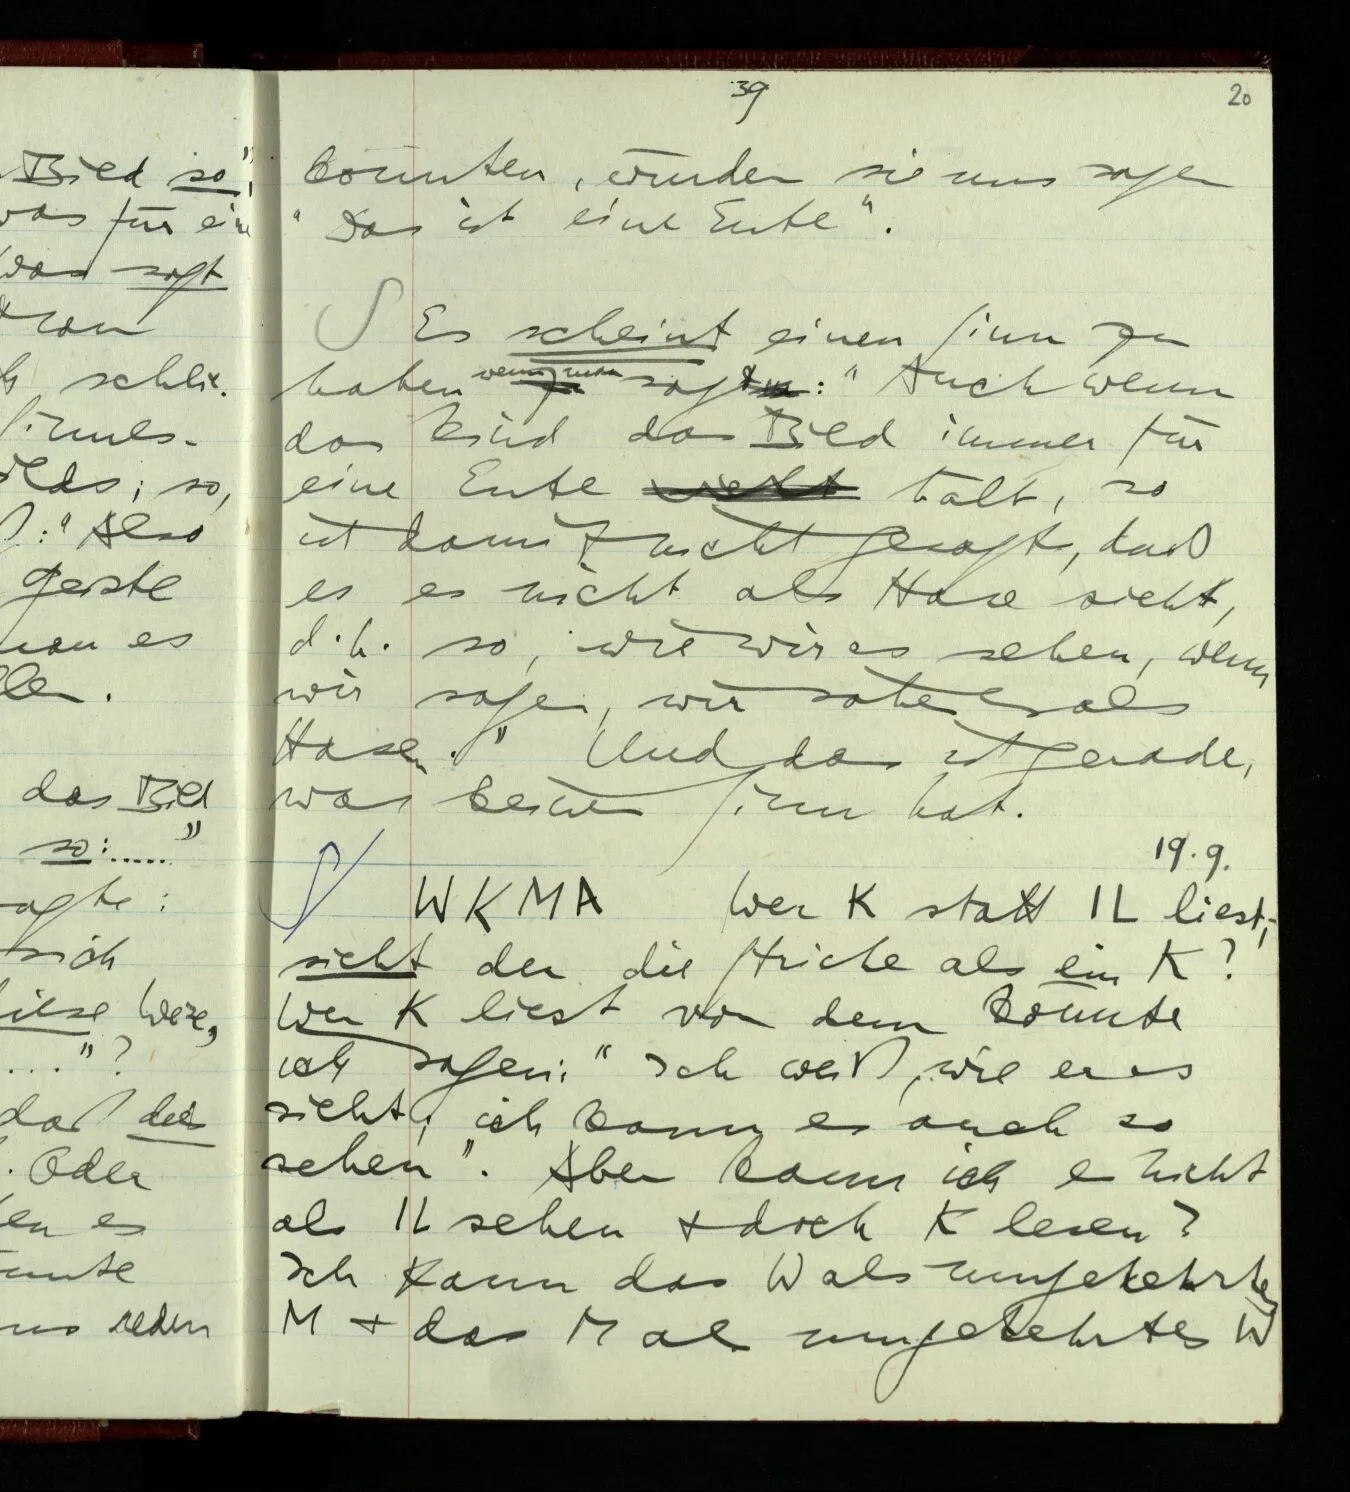 39
20
Bild so",
was für ein
was sagt
man
schlie-
Sinnes-
so,
Also
Geste
man es
das Bild
so:....."
sagte:
sich
diese Weise,
..."?
daß das
Oder
en es
könnte
uns reden
könnten, würden sie uns sagen
"Das ist eine Ente".
Es scheint einen Sinn zu
haben wenn man sagt: "Auch wenn
das Kind das Bild immer für
eine Ente hält, so
ist damit nicht gesagt, daß
es es nicht als Hase sieht,
d.h. so, wie wir es sehen, wenn
wir sagen, wir sähen es als
Hasen." Und das ist gerade,
was keinen Sinn hat.
19.9.
WKMA Wer K statt IL liest,
sieht der die Striche als ein K?
Wer K liest von dem könnte
ich sagen: "Ich weiß, wie er es
sieht; ich kann es auch so
sehen". Aber kann ich es nicht
als IL sehen + doch K lesen?
Ich kann das W als umgekehrtes
M + das M als umgekehrtes W